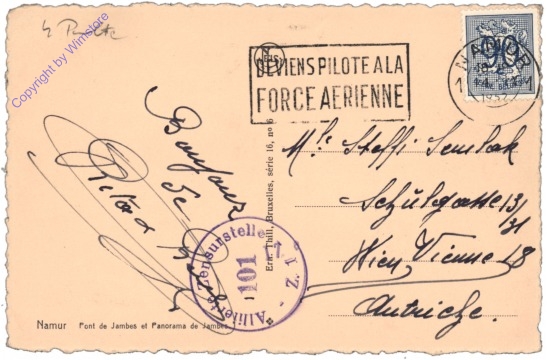 Copyright by Winstore
90
NAMUR
1952
DEVIENS PILOTE A LA
FORCE AERIENNE
Bonjour
de
Mlle Steffi
Schulgasse 13/
31
Wien, Vienne 18
Autriche.
Ern. Thill, Bruxelles, série 16, no 6
Alliierte Zensurstelle
101
Z. 1
Namur Pont de Jambes et Panorama de Jambes